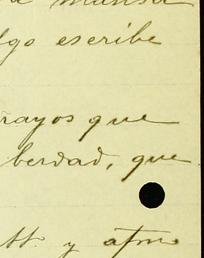 a mansa
lgo escribe
rayos que
berdad, que
y atmo